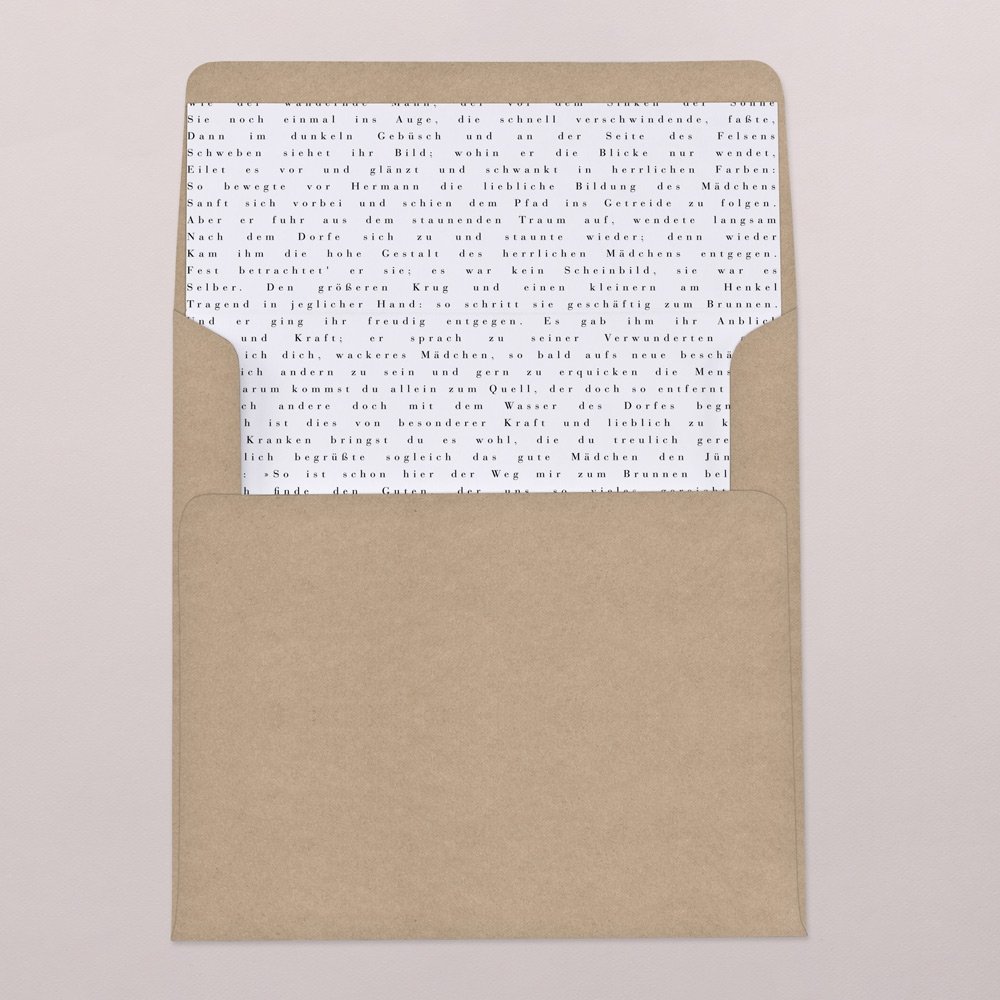 Wie der wandernde Mann, der vor dem Sinken der Sonne
Sie noch einmal ins Auge, die schnell verschwindende, faßte,
Dann im dunkeln Gebüsch und an der Seite des Felsens
Schweben siehet ihr Bild; wohin er die Blicke nur wendet,
Eilet es vor und glänzt und schwankt in herrlichen Farben:
So bewegte vor Hermann die liebliche Bildung des Mädchens
Sanft sich vorbei und schien dem Pfad ins Getreide zu folgen.
Aber er fuhr aus dem staunenden Traum auf, wendete langsam
Nach dem Dorfe sich zu und staunte wieder; denn wieder
Kam ihm die hohe Gestalt des herrlichen Mädchens entgegen.
Fest betrachtet' er sie; es war kein Scheinbild, sie war es
Selber. Den größeren Krug und einen kleinern am Henkel
Tragend in jeglicher Hand: so schritt sie geschäftig zum Brunnen.
Und er ging ihr freudig entgegen. Es gab ihm ihr Anblick
und Kraft; er sprach zu seiner Verwunderten
ich dich, wackeres Mädchen, so bald aufs neue beschä
ich andern zu sein und gern zu erquicken die Mens
arum kommst du allein zum Quell, der doch so entfernt
ch andere doch mit dem Wasser des Dorfes begn
h ist dies von besonderer Kraft und lieblich zu k
Kranken bringst du es wohl, die du treulich gere
lich begrüßte sogleich das gute Mädchen den Jün
: »So ist schon hier der Weg mir zum Brunnen bel
h finde den Guten, der uns so vieles gereicht